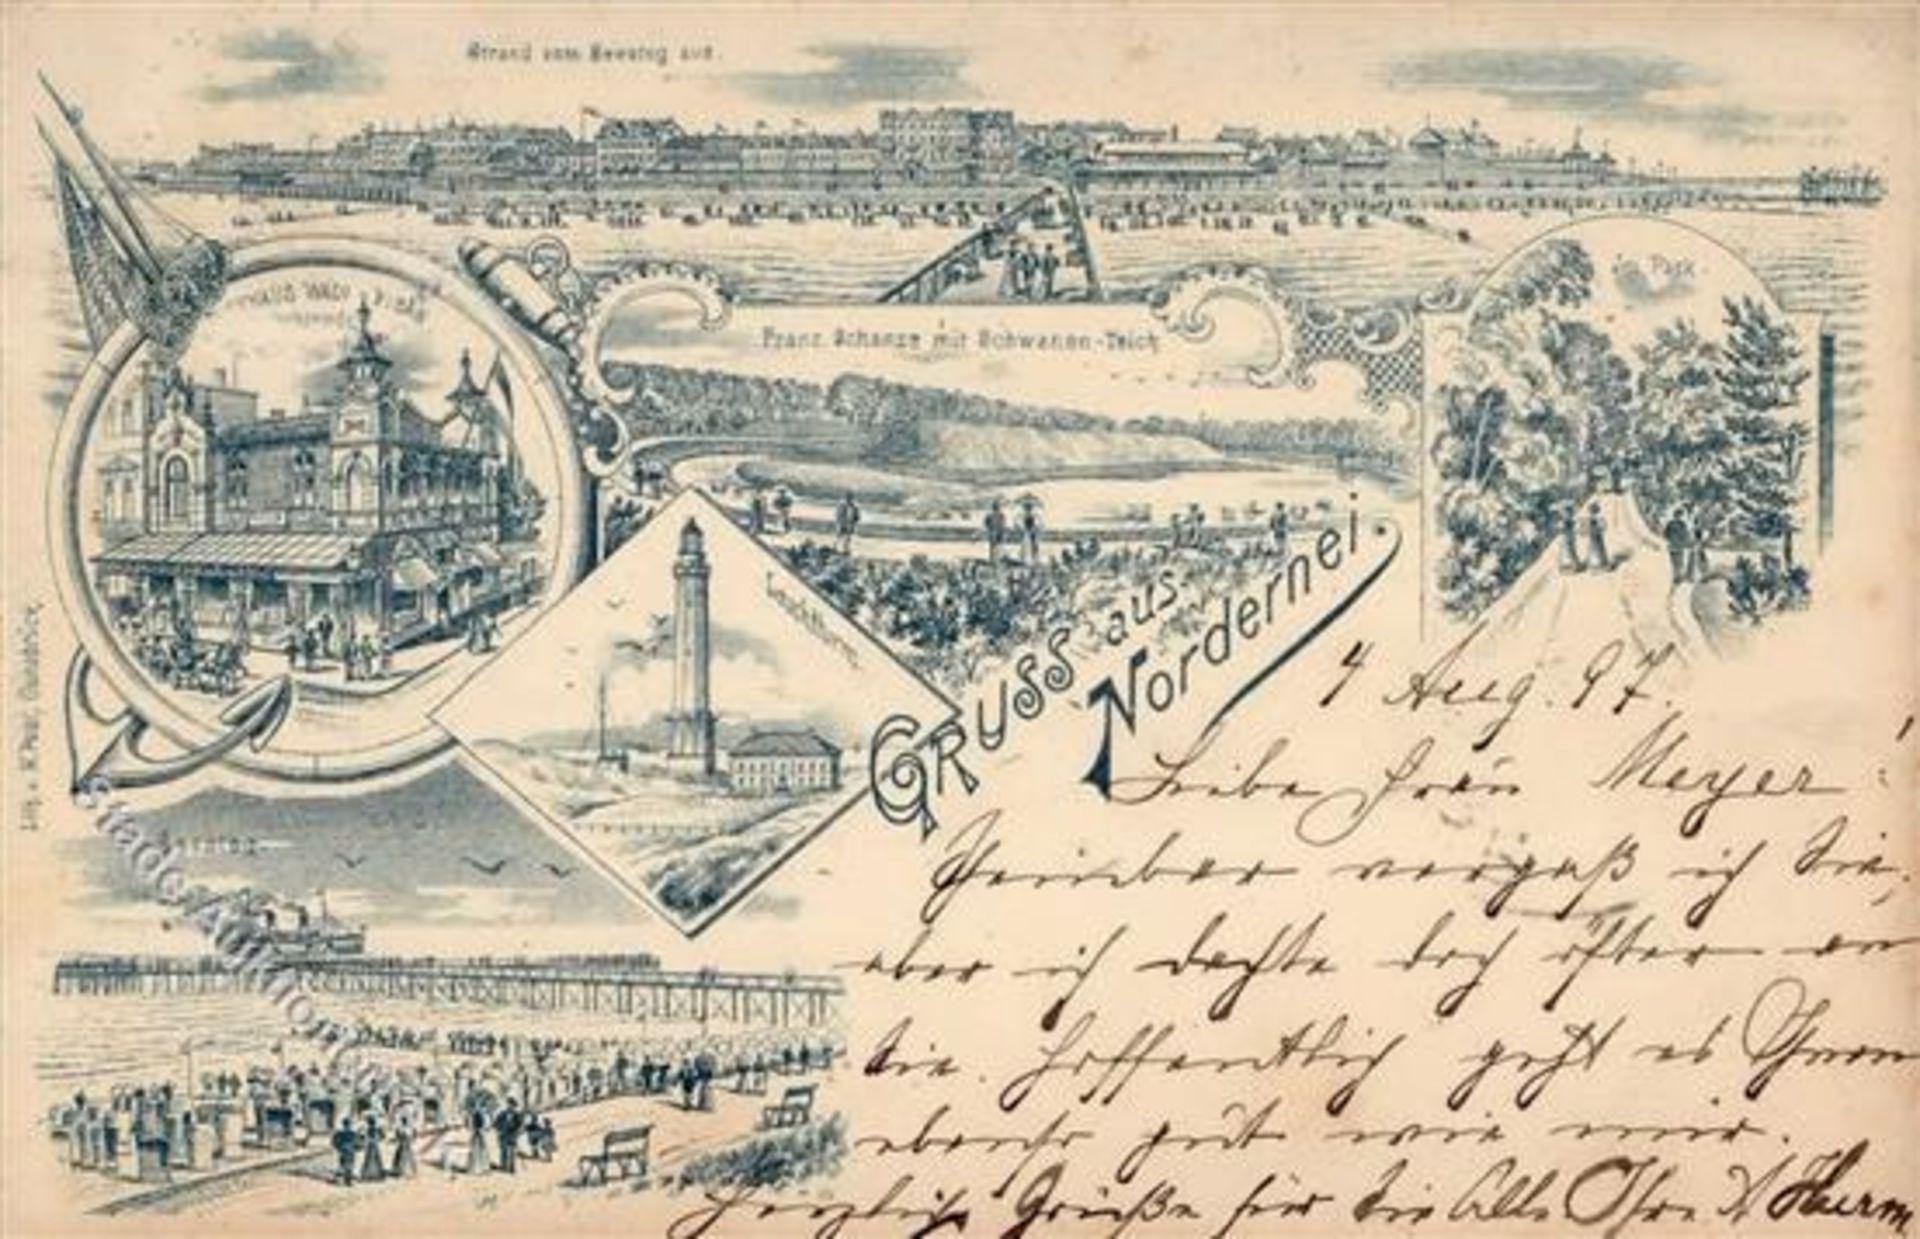 Strand vom Seesteg aus.
Im Park.
Franz. Schanze mit Schwanen-Teich
Leuchtthurm
Gruss aus
Nordernei.
4 Aug. 97.
Liebe Frau Meyer!
Scheinbar vergaß ich Sie,
aber ich dachte doch öfter an
Sie. Hoffentlich geht es Ihnen
ebenso gut wie mir.
Herzliche Grüße für Sie Alle Ihre A
Seesteg